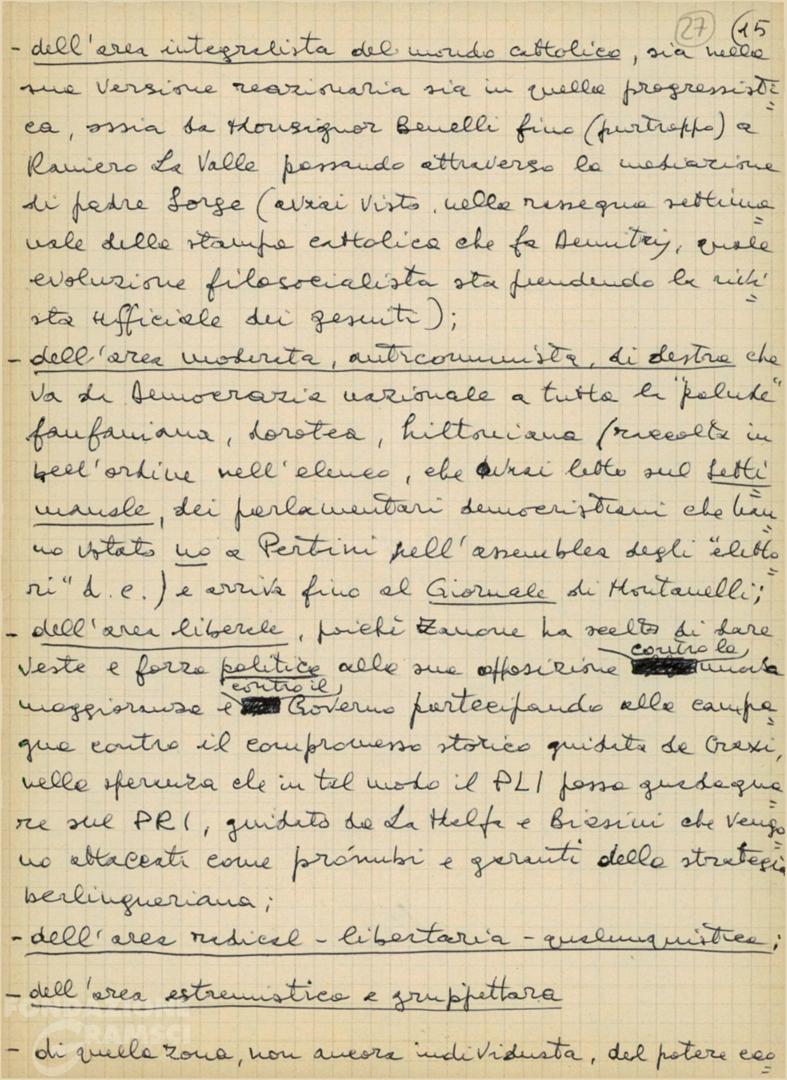 27 (15
- dell'area integralista del mondo cattolico, sia nella
sua versione reazionaria sia in quella progressisti=
ca, ossia da Monsignor Benelli fino (purtroppo) a
Raniero La Valle passando attraverso la mediazione
di padre Sorge (avrai visto, nella rassegna settima=
nale della stampa cattolica che fa Demitry, quale
evoluzione filosocialista sta prendendo la rivi=
sta ufficiale dei gesuiti);
- dell'area moderata, anticomunista, di destra che
va da Democrazia nazionale a tutta la "palude"
fanfaniana, dorotea, hiltoniana (raccolta in
bell'ordine nell'elenco, che avrai letto sul Setti=
manale, dei parlamentari democristiani che han=
no votato no a Pertini nell'assemblea degli "eletto=
ri" d.c.) e arriva fino al Giornale di Montanelli;
- dell'area liberale, poiché Zanone ha scelto di dare
veste e forza politica alla sua opposizione contro la nuova
maggioranza e contro il Governo partecipando alla campa=
gna contro il compromesso storico guidata da Craxi,
nella speranza che in tal modo il PLI possa guadagna=
re sul PRI, guidato da La Malfa e Biasini che vengo=
no attaccati come prónubi e garanti della strategia
berlingueriana;
- dell'area radical-libertaria-qualunquistica;
- dell'area estremistica e gruppettara
- di quella zona, non ancora individuata, del potere eco=
FONDAZIONE
GRAMSCI